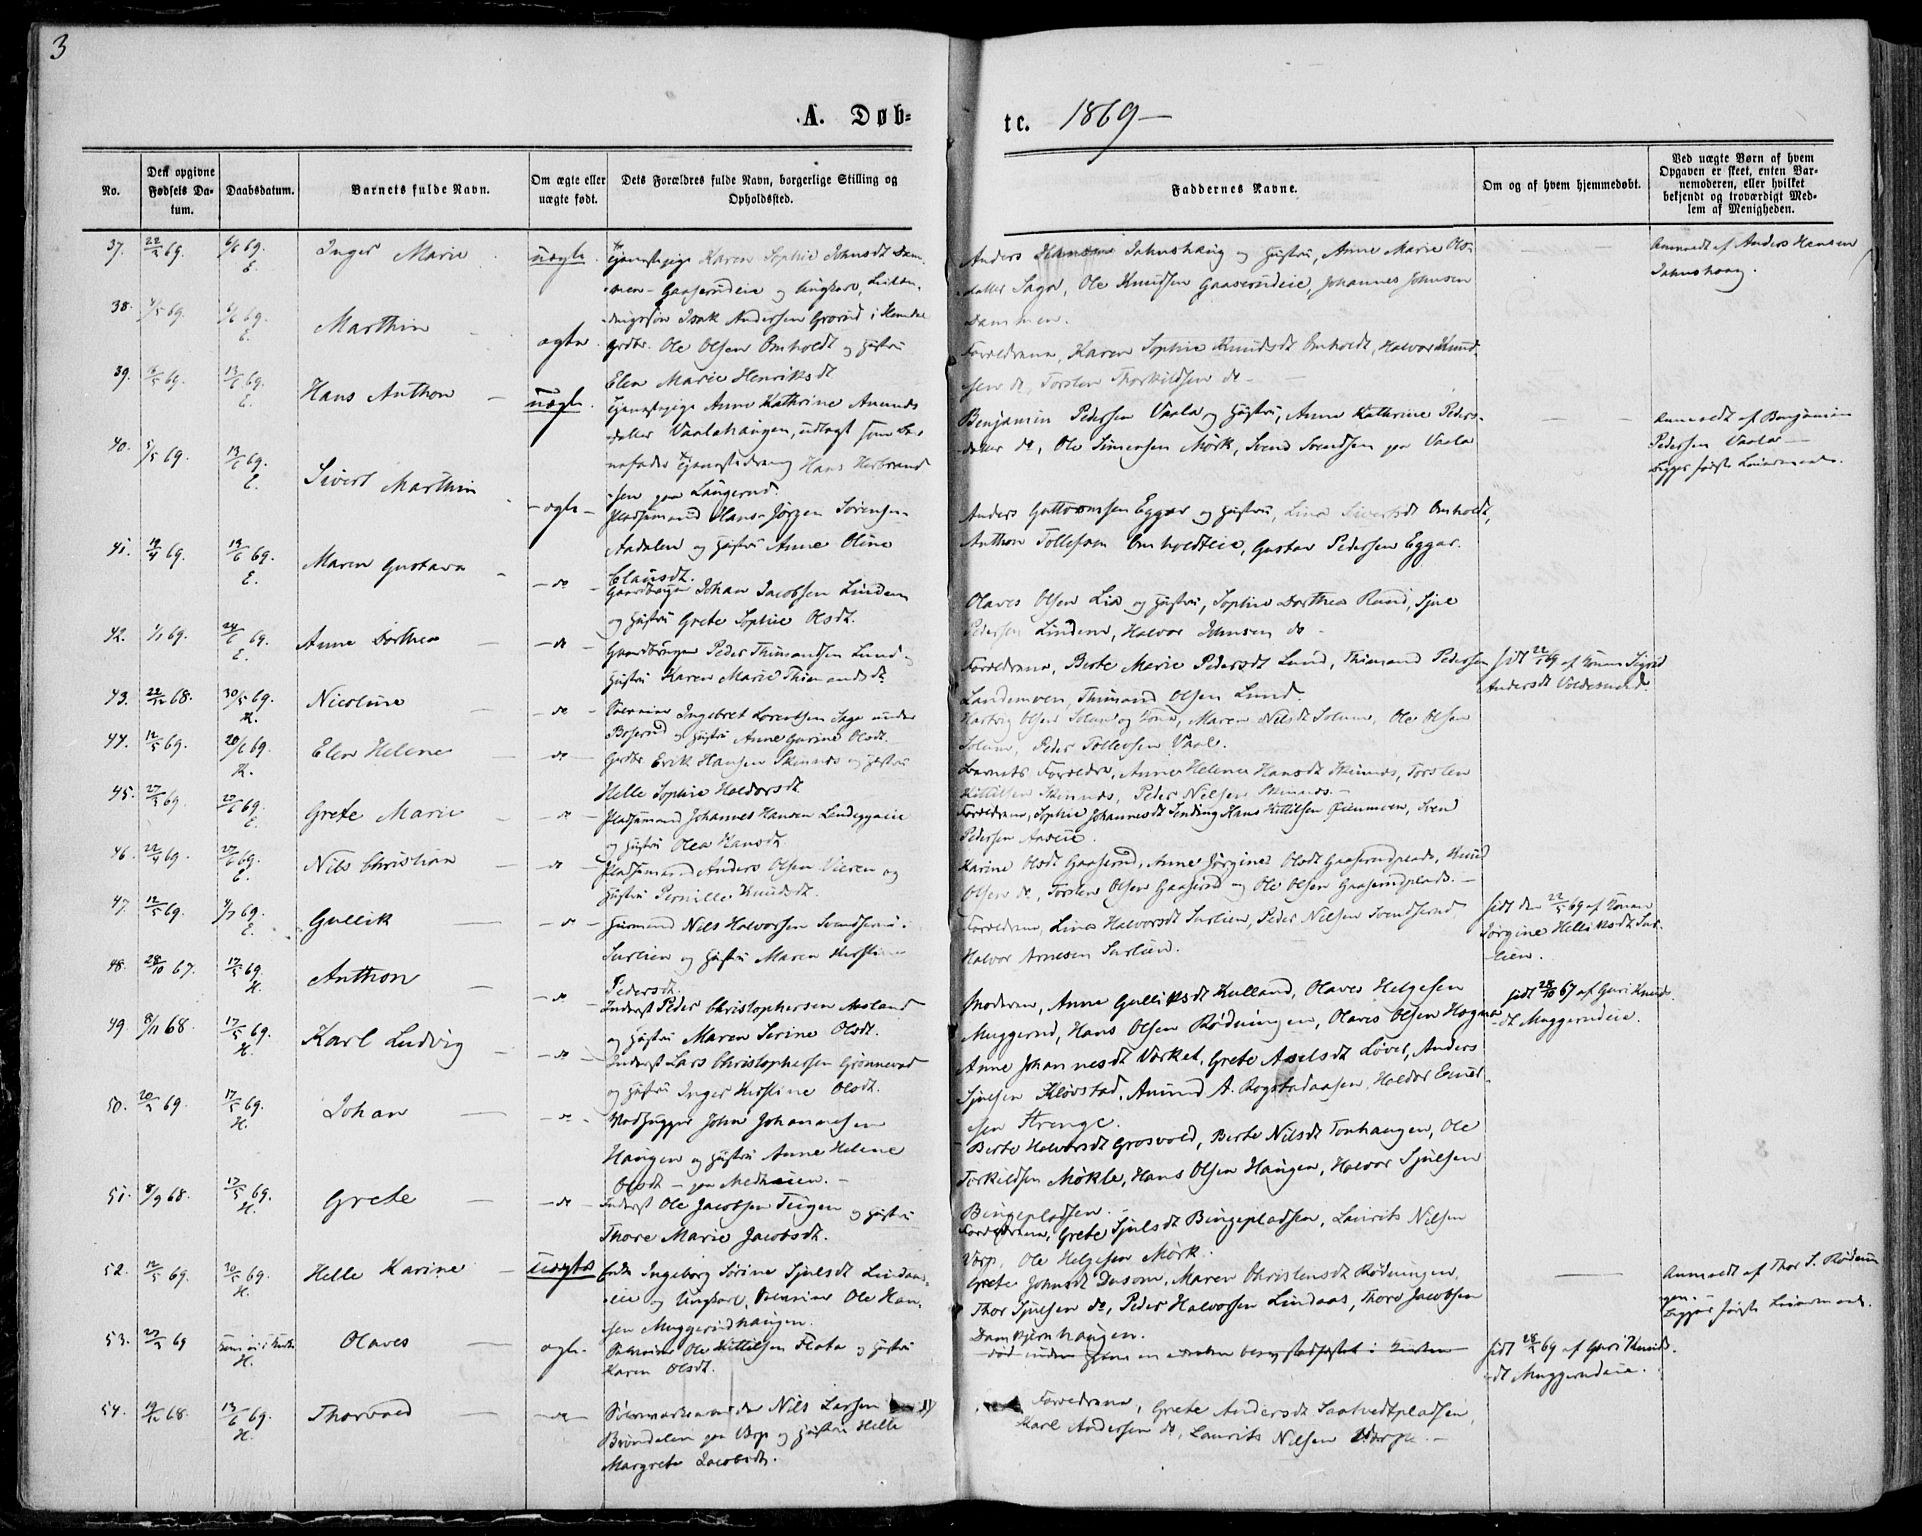 3
A. Døb-
te. 1869 —
No.
Den opgivne Fødsels Da-tum.
Daabsdatum.
Barnets fulde Navn.
Om ægte eller uægte født.
Dets Forældres fulde Navn, borgerlige Stilling og Opholdssted.
Faddernes Navne.
Om og af hvem hjemmedøbt.
Ved uægte Børn af hvem Opgaven er skeet, enten Bar-nemoderen, eller hvilket bekjendt og troværdigt Med-lem af Menigheden.
37. 22/2 69. 6/6 69. E. Inger Marie uægte.
Tjenestepige Karen Sophie Johnsdt Dam-
men - Gaaserudeie og Ungkarl,
Isak Andersen Grorud i
Anders Jahnshaug og Hustru, Anne Marie Ols-
datter Saga, Ole Knudsen Gaaserudeie, Johannes Johnsen
Dammen.
Anmeldt af Anders Hansen
Jahnshaug.
38. 4/5 69. 6/6 69. E. Marthin ægte.
Grdbr. Ole Olsen Omholdt og Hustru
Elen Marie Henriksdt
Forældrene, Karen Sophie Knudsdt Omholdt, Halvor Knud-
sen do, Torsten Thorkildsen do -
39. 69. 13/6 69. E. Hans Anthon uægte.
Tjenestepige Anne Kathrine Amunds
datter Vaalahaugen, udlagt som Bar-
nefader Tjenestedreng Hans Herbrand
sen paa Laugerud.
Benjamin Pedersen Vaala og Hustru, Anne Kathrine Peders-
datter do, Ole Simensen Mørk, Svend Svendsen paa Vaala
Anmeldt af Benjamin
Pedersen Vaala -
Begges første Leiermaal.
40. 5/5 69. 13/6 69. E. Sivert Marthin - ægte -
Pladsmand Hans Jørgen Sørensen
Aadalen og Hustru Anne Oline
Clausdt.
Anders Guttormsen Eggar og Hustru, Lina Sivertsdt Omholdt,
Anthon Tollefsen Omholdteie, Gustav Pedersen Eggar.
41. 19/4 69. 13/6 69. E. Maren Gustava - do
Gaardbruger Johan Jacobsen Linden
og Hustru Grete Sophie Olsdt.
Olaves Olsen Lia og Hustru, Sophie Dorthea Rund, Sjul
Pedersen Lindem, Halvor Johnsen do -
42. 1/1 69. 24/6 69. E. Anne Dorthea - do -
Gaardbruger Peder Thimandsen Lund og
Hustru Karen Marie Thimandsdt
Forældrene, Berte Marie Pedersdt Lund, Thimand Pedersen
Landemoen, Thimand Olsen Lund.
hjdt 22/1 69 af Konen Sigrid
Andersdt Voldesund.
43. 22/12 68. 30/5 69. H. Nicoline - do
Ingebret Lorentsen Saga under
Boserud og Hustru Anne Gurine Olsdt.
Hartvig Olsen Solum og Kone, Maren Nilsdt Solum, Ole Olsen
Solum, Peder Tollevsen Vaale.
44. 12/5 69. 20/6 69. H. Elen Helene - do -
Grdbr. Erik Hansen Skinnes og Hustru
Helle Sophie Haldorsdt.
Barnets Forældre, Anne Helene Hansdt Skinnes, Torsten
Kittilsen Skinnes, Peder Nilsen Skinnes. -
45. 27/5 69. 27/6 69. E. Grete Marie - do -
Pladsmand Johannes Hansen Lindeggeie
og Hustru Olea Hansdt.
Forældrene, Sophie Johannesdt Hans Kittilsen Øienmoen, Sven
Pedersen Aaseie.
46. 22/4 69. 27/6 69. E. Nils Christian - do
Pladsmand Anders Olsen Vieren og
Hustru Pernille Knudsdt.
Karine Olsdt Gaaserud, Anne Jørgine Olsdt Gaaserudplads, Knud
Olsen do, Torsten Olsen Gaaserud og Ole Olsen Gaaserudplads. -
47. 12/5 69. 4/7 69. E. Gullik - do -
Huusmand Nils Halvorsen Svendserud i
Surlien og Hustru Maren Kirstine
Pedersdt.
Forældrene, Lina Halvorsdt Surlien, Peder Nilsen Svendserud,
Halvor Arnesen Surlien.
hjdt den 22/5 69 af Konen
Jørgine Helliksdt Sur-
lien.
48. 28/10 67. 17/5 69. H. Anthon - do
Inderst Peder Christophersen Aasland
og Hustru Maren Serine Olsdt.
Moderen, Anne Gulliksdt Kulland, Olaves Helgesen
Muggerud, Hans Olsen Rødningen, Olaves Olsen Hogna
hjdt 28/10 67 af Guri Knuds-
dt Muggerudeie.
49. 8/11 68. 17/5 69. H. Karl Ludvig - do
Inderst Lars Christophersen Grønnerod
og Hustru Inger Kirstine Olsdt.
Anne Johannesdt Værket, Grete Axelsdt Løvet, Anders
Sjulsen Kløvstad, Amund A. Rogstadaasen, Haldor Enersen
Strenge.
50. 20/2 69. 17/5 69. H. Johan - do -
John Johannesen
Haugen og Hustru Anne Helene
Olsdt - paa Medheien. -
Berte Halvorsdt Grosvold, Berte Nilsdt Tonhaugen, Ole
Torkildsen Møkle, Hans Olsen Haugen, Halvor Sjulsen
Bingepladsen. -
51. 8/9 68. 17/5 69. H. Grete - do -
Inderst Ole Jacobsen Teigen og Hustru
Thore Marie Jacobsdt.
Forældrene, Grete Sjulsdt Bingepladsen, Laurits Nilsen
Værp, Ole Helgesen Mørk.
52. 12/5 69. 30/5 69. H. Helle Karine - uægte
Enke Ingeborg Sørine Sjulsdt Lindaas-
eie og Ungkarl, Ole Han-
sen Muggerudhaugen.
Grete Johnsdt Dusom, Maren Christensdt Rødningen,
Thor Sjulsen do, Peder Halvorsen Lindaas, Thore Jacobsen
Dambjernhaugen.
Anmeldt af Thor S. Rødnin
gen. -
Begges første Leiermaal.
53. 27/2 69 H. Olaves - ægte.
Ole Kittilsen Flata og Hustru
Karen Olsdt.
hjdt 28/2 69 af Guri Knuds-
dt Muggerudeie.
54. 19/12 68. 13/6 69. H. Thorvald - do -
Nils Larsen
Brøndalen paa Værp og Hustru Helle
Margrete Jacobsdt.
Forældrene, Grete Andersdt Saatvedtpladsen,
Karl Andersen do, Laurits Nilsen Værp. -